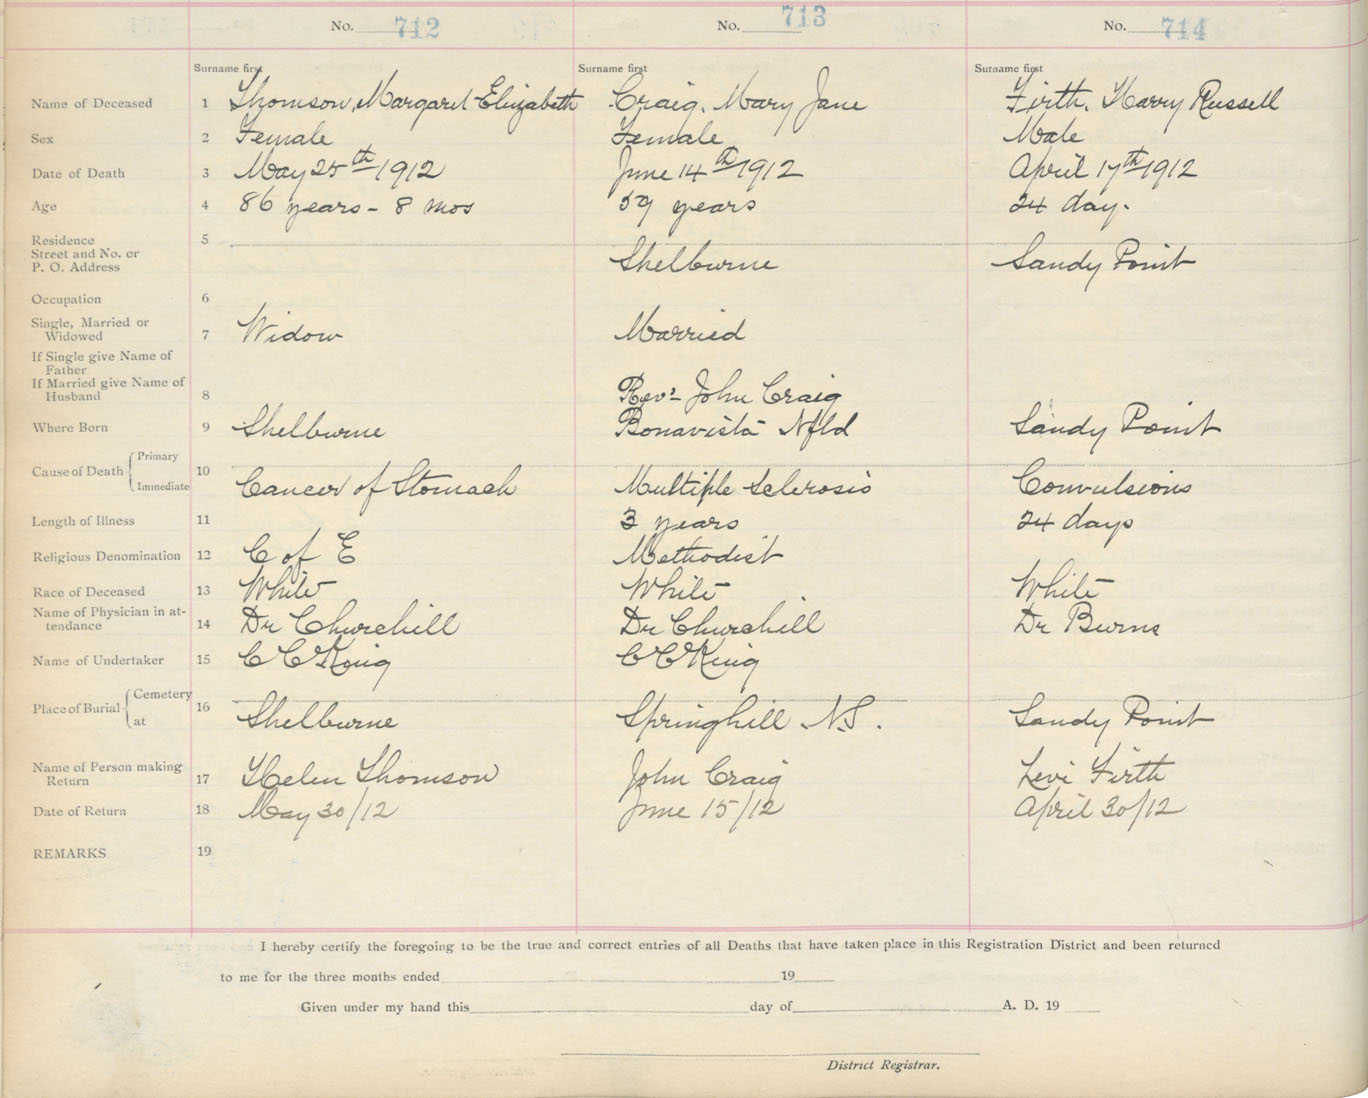 No. 712 No. 713 No. 714
Surname first Surname first Surname first
Name of Deceased 1 Thomson, Margaret Elizabeth Craig, Mary Jane Firth, Harry Russell
Sex 2 Female Female Male
Date of Death 3 May 25th 1912 June 14th 1912 April 17th 1912
Age 4 86 years - 8 mos 59 years 24 day.
Residence 5
Street and No. or
P. O. Address Shelburne Sandy Point
Occupation 6
Single, Married or
Widowed 7 Widow Married
If Single give Name of
Father
If Married give Name of
Husband 8 Revd John Craig
Where Born 9 Shelburne Bonavista Nfld Sandy Point
Cause of Death Primary 10
Immediate Cancer of Stomach Multiple Sclerosis Convulsions
Length of Illness 11 3 years 24 days
Religious Denomination 12 C of E Methodist
Race of Deceased 13 White White White
Name of Physician in at-
tendance 14 Dr Churchill Dr Churchill Dr Burns
Name of Undertaker 15 C C King C C King
Place of Burial Cemetery 16
at Shelburne Springhill N.S. Sandy Point
Name of Person making
Return 17 Helen Thomson John Craig Levi Firth
Date of Return 18 May 30/12 June 15/12 April 30/12
REMARKS 19
I hereby certify the foregoing to be the true and correct entries of all Deaths that have taken place in this Registration District and been returned
to me for the three months ended 19
Given under my hand this day of A. D. 19
District Registrar.